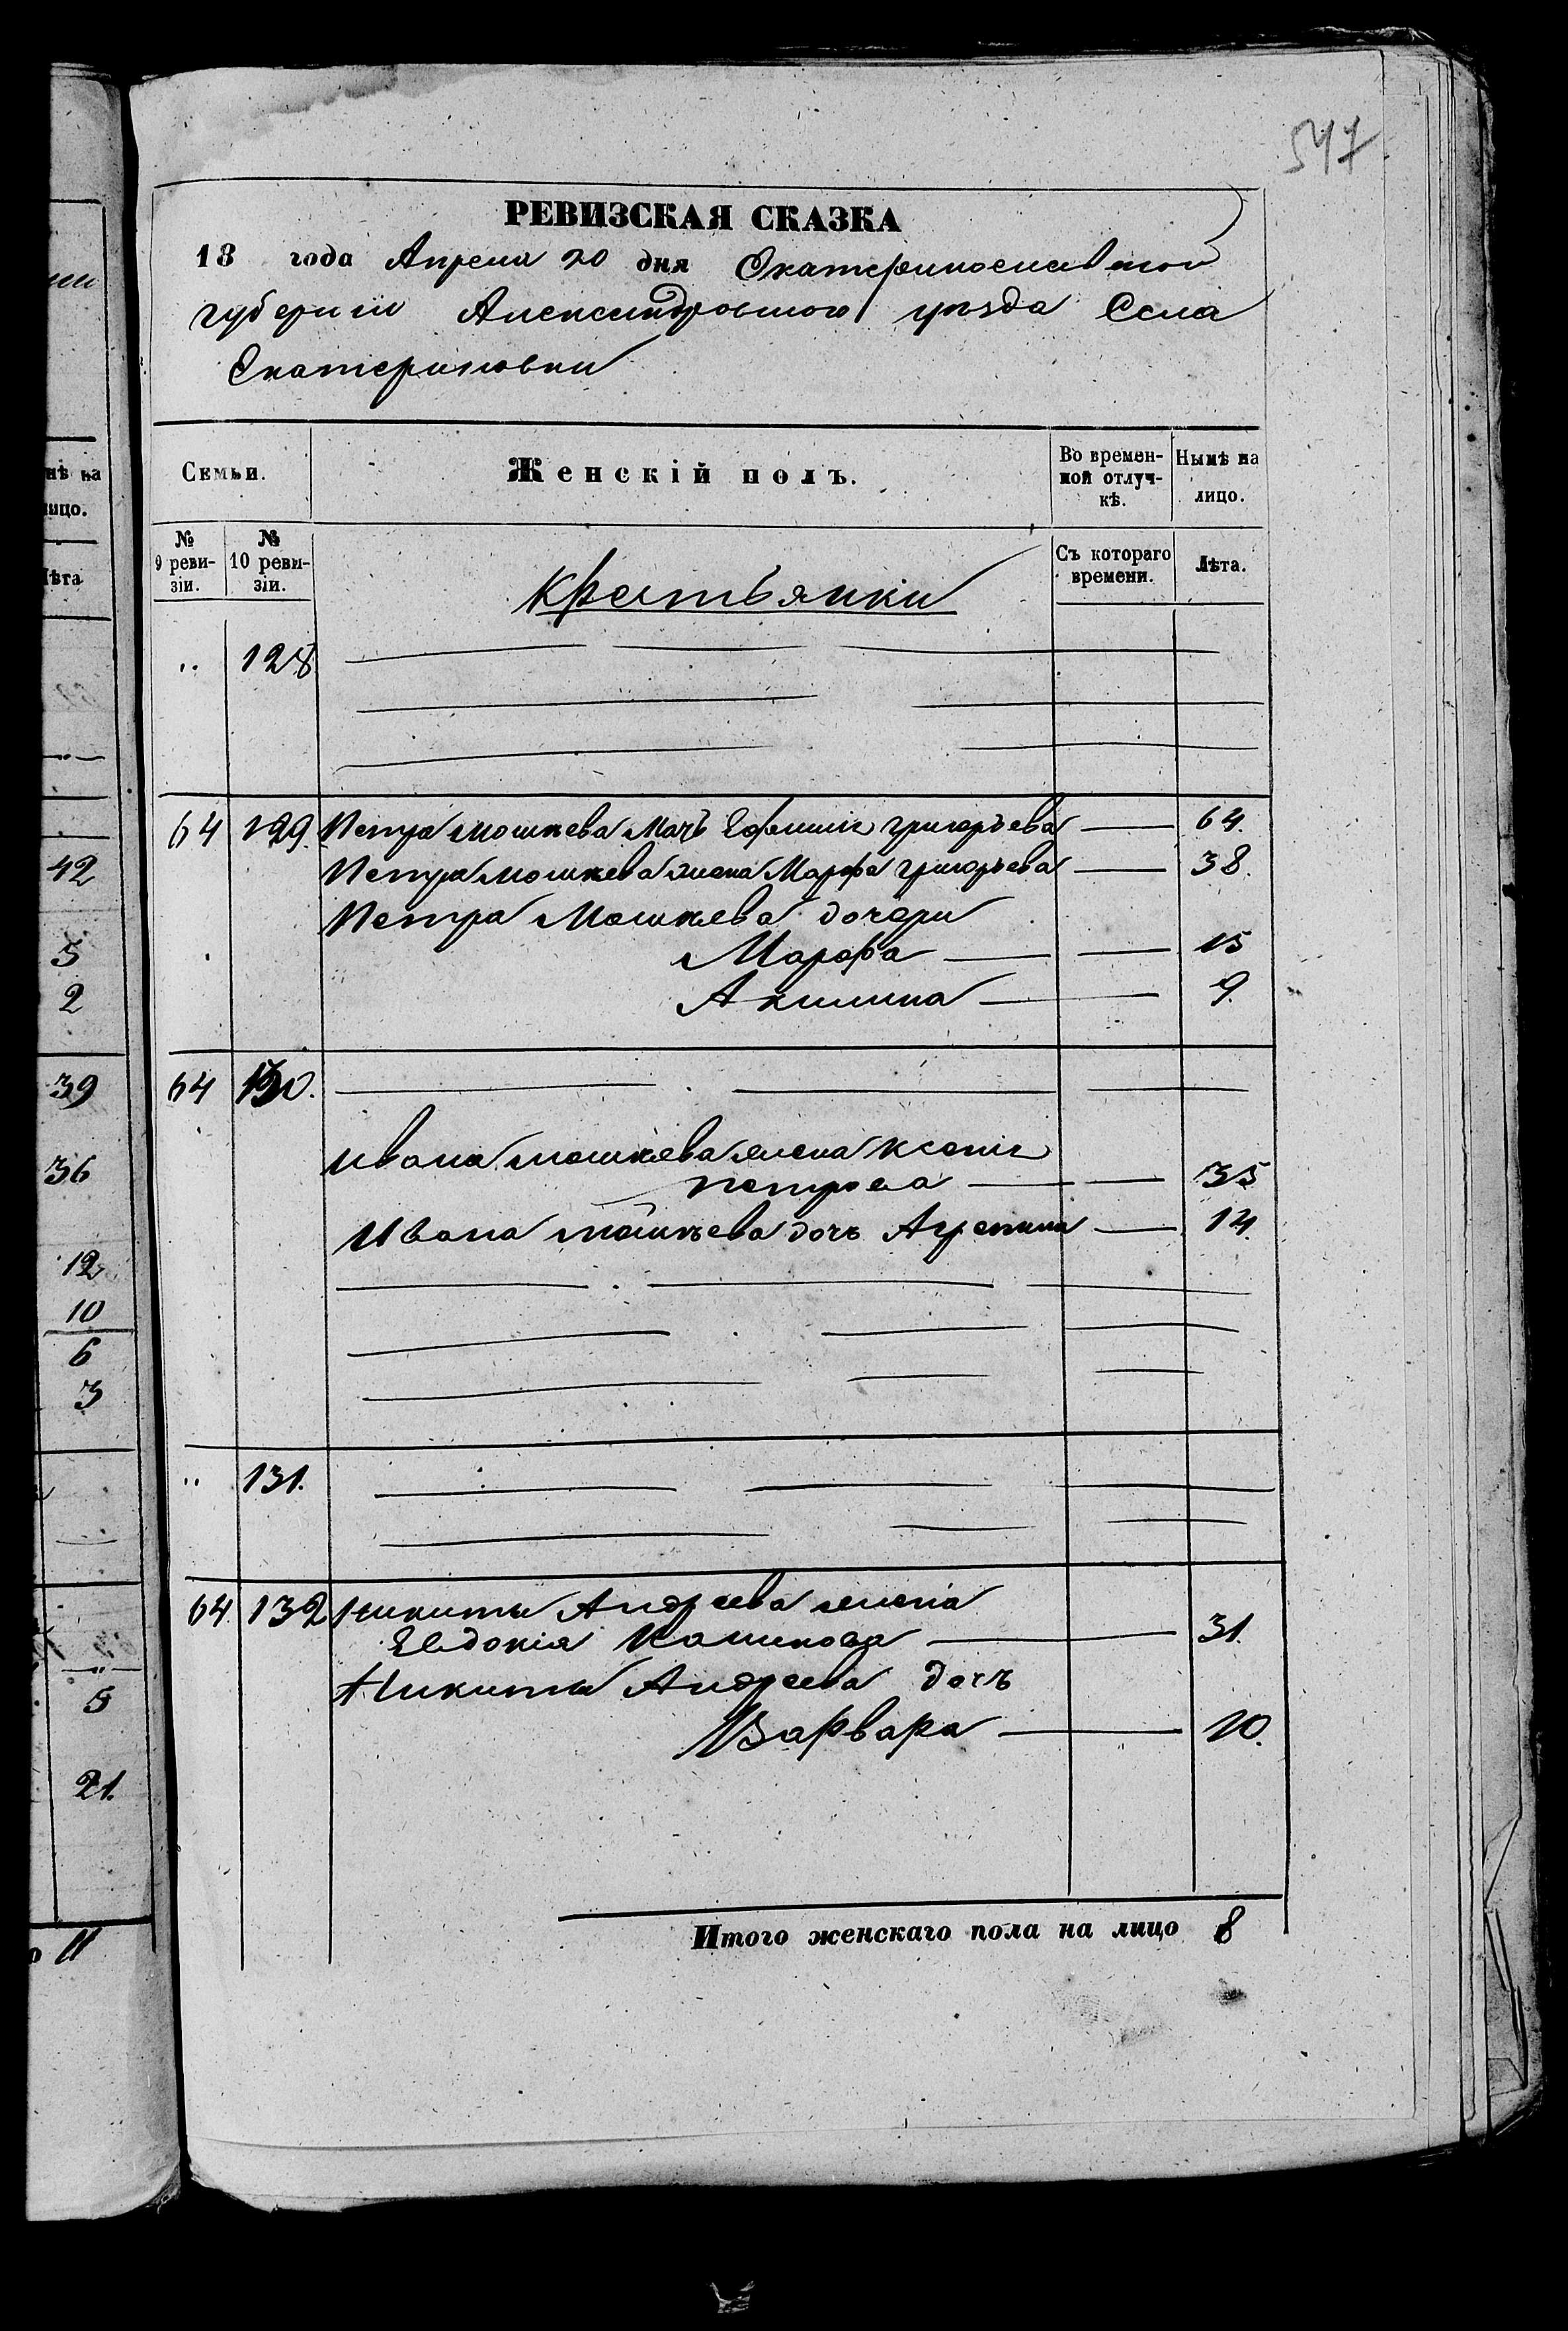 547
РЕВИЗСКАЯ СКАЗКА
18 года Апреля 20 дня Екатеринославской
губернии Александровского уезда Села
Екатериновки
Семьи.
Женскій полъ.
Во времен-
ной отлуч-
кѣ.
Нынѣ на
лицо.
№
9 реви-
зіи.
№
10 реви-
зіи.
Крестьянки
Съ котораго
времени.
Лѣта.
„ 128
64 129. Петра Мошнева Мать Ефимия Григорьева — 64.
Петра Мошнева жена Марфа Григорьева — 38.
Петра Мошнева дочери
Марфа — 15
Акилина — 9.
64 130.
Ивана Мошнева жена Ксения
Петрова — 35
Ивана Мошнева дочь Агрепина — 14.
„ 131.
64. 132 Никиты Андреева жена
Евдокия — 31.
Никиты Андреева дочь
Варвара — 10.
Итого женскаго пола на лицо 8
нѣ на
лицо.
Лѣта
42
5
2
39
36
12
10
6
3
5
21.
о 11